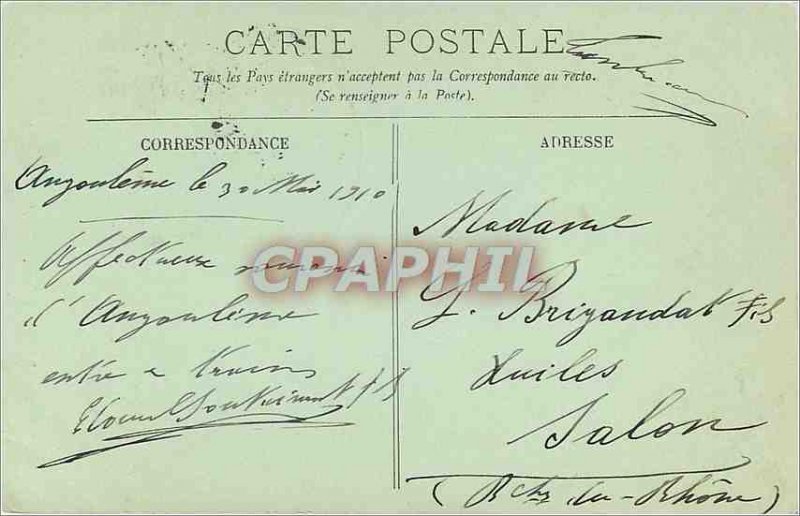 CARTE POSTALE
Tous les Pays étrangers n'acceptent pas la Correspondance au recto.
(Se renseigner à la Poste).
CORRESPONDANCE
Angoulême le 30 Mai 1910
Affectueux
d'Angoulême
entre 2 trains
ADRESSE
Madame
L. Brigandat Fils
Huiles
Salon
(Bches du-Rhône)
CPARPHIL